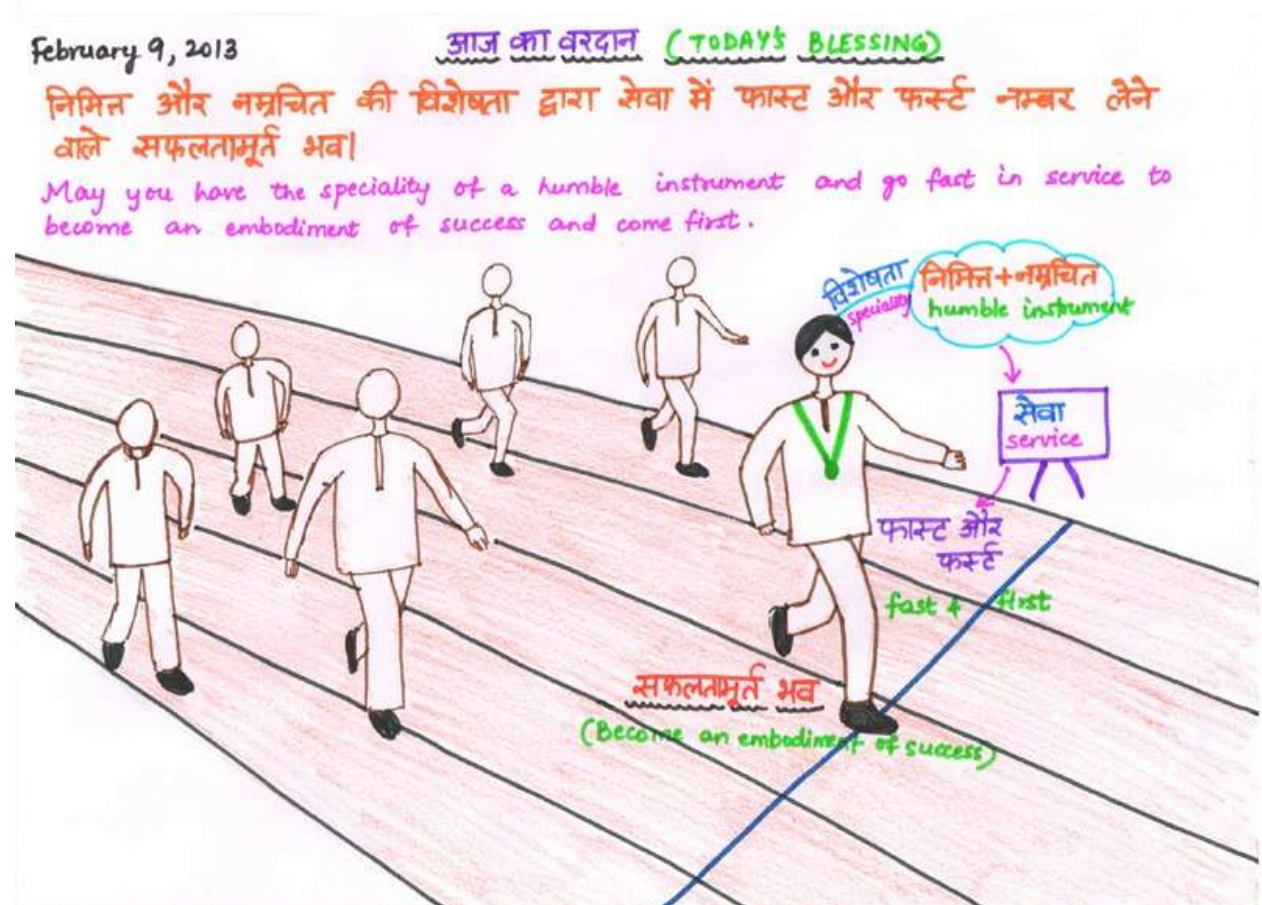 February 9, 2013
आज का वरदान (TODAY'S BLESSING)
निमित्त और नम्रचित की विशेषता द्वारा सेवा में फास्ट और फर्स्ट नम्बर लेने
वाले सफलतामूर्त भव।
May you have the speciality of a humble instrument and go fast in service to
become an embodiment of success and come first.
विशेषता
speciality
निमित्त+नम्रचित
humble instrument
सेवा
service
फास्ट और
फर्स्ट
fast & first
सफलतामूर्त भव
(Become an embodiment of success)